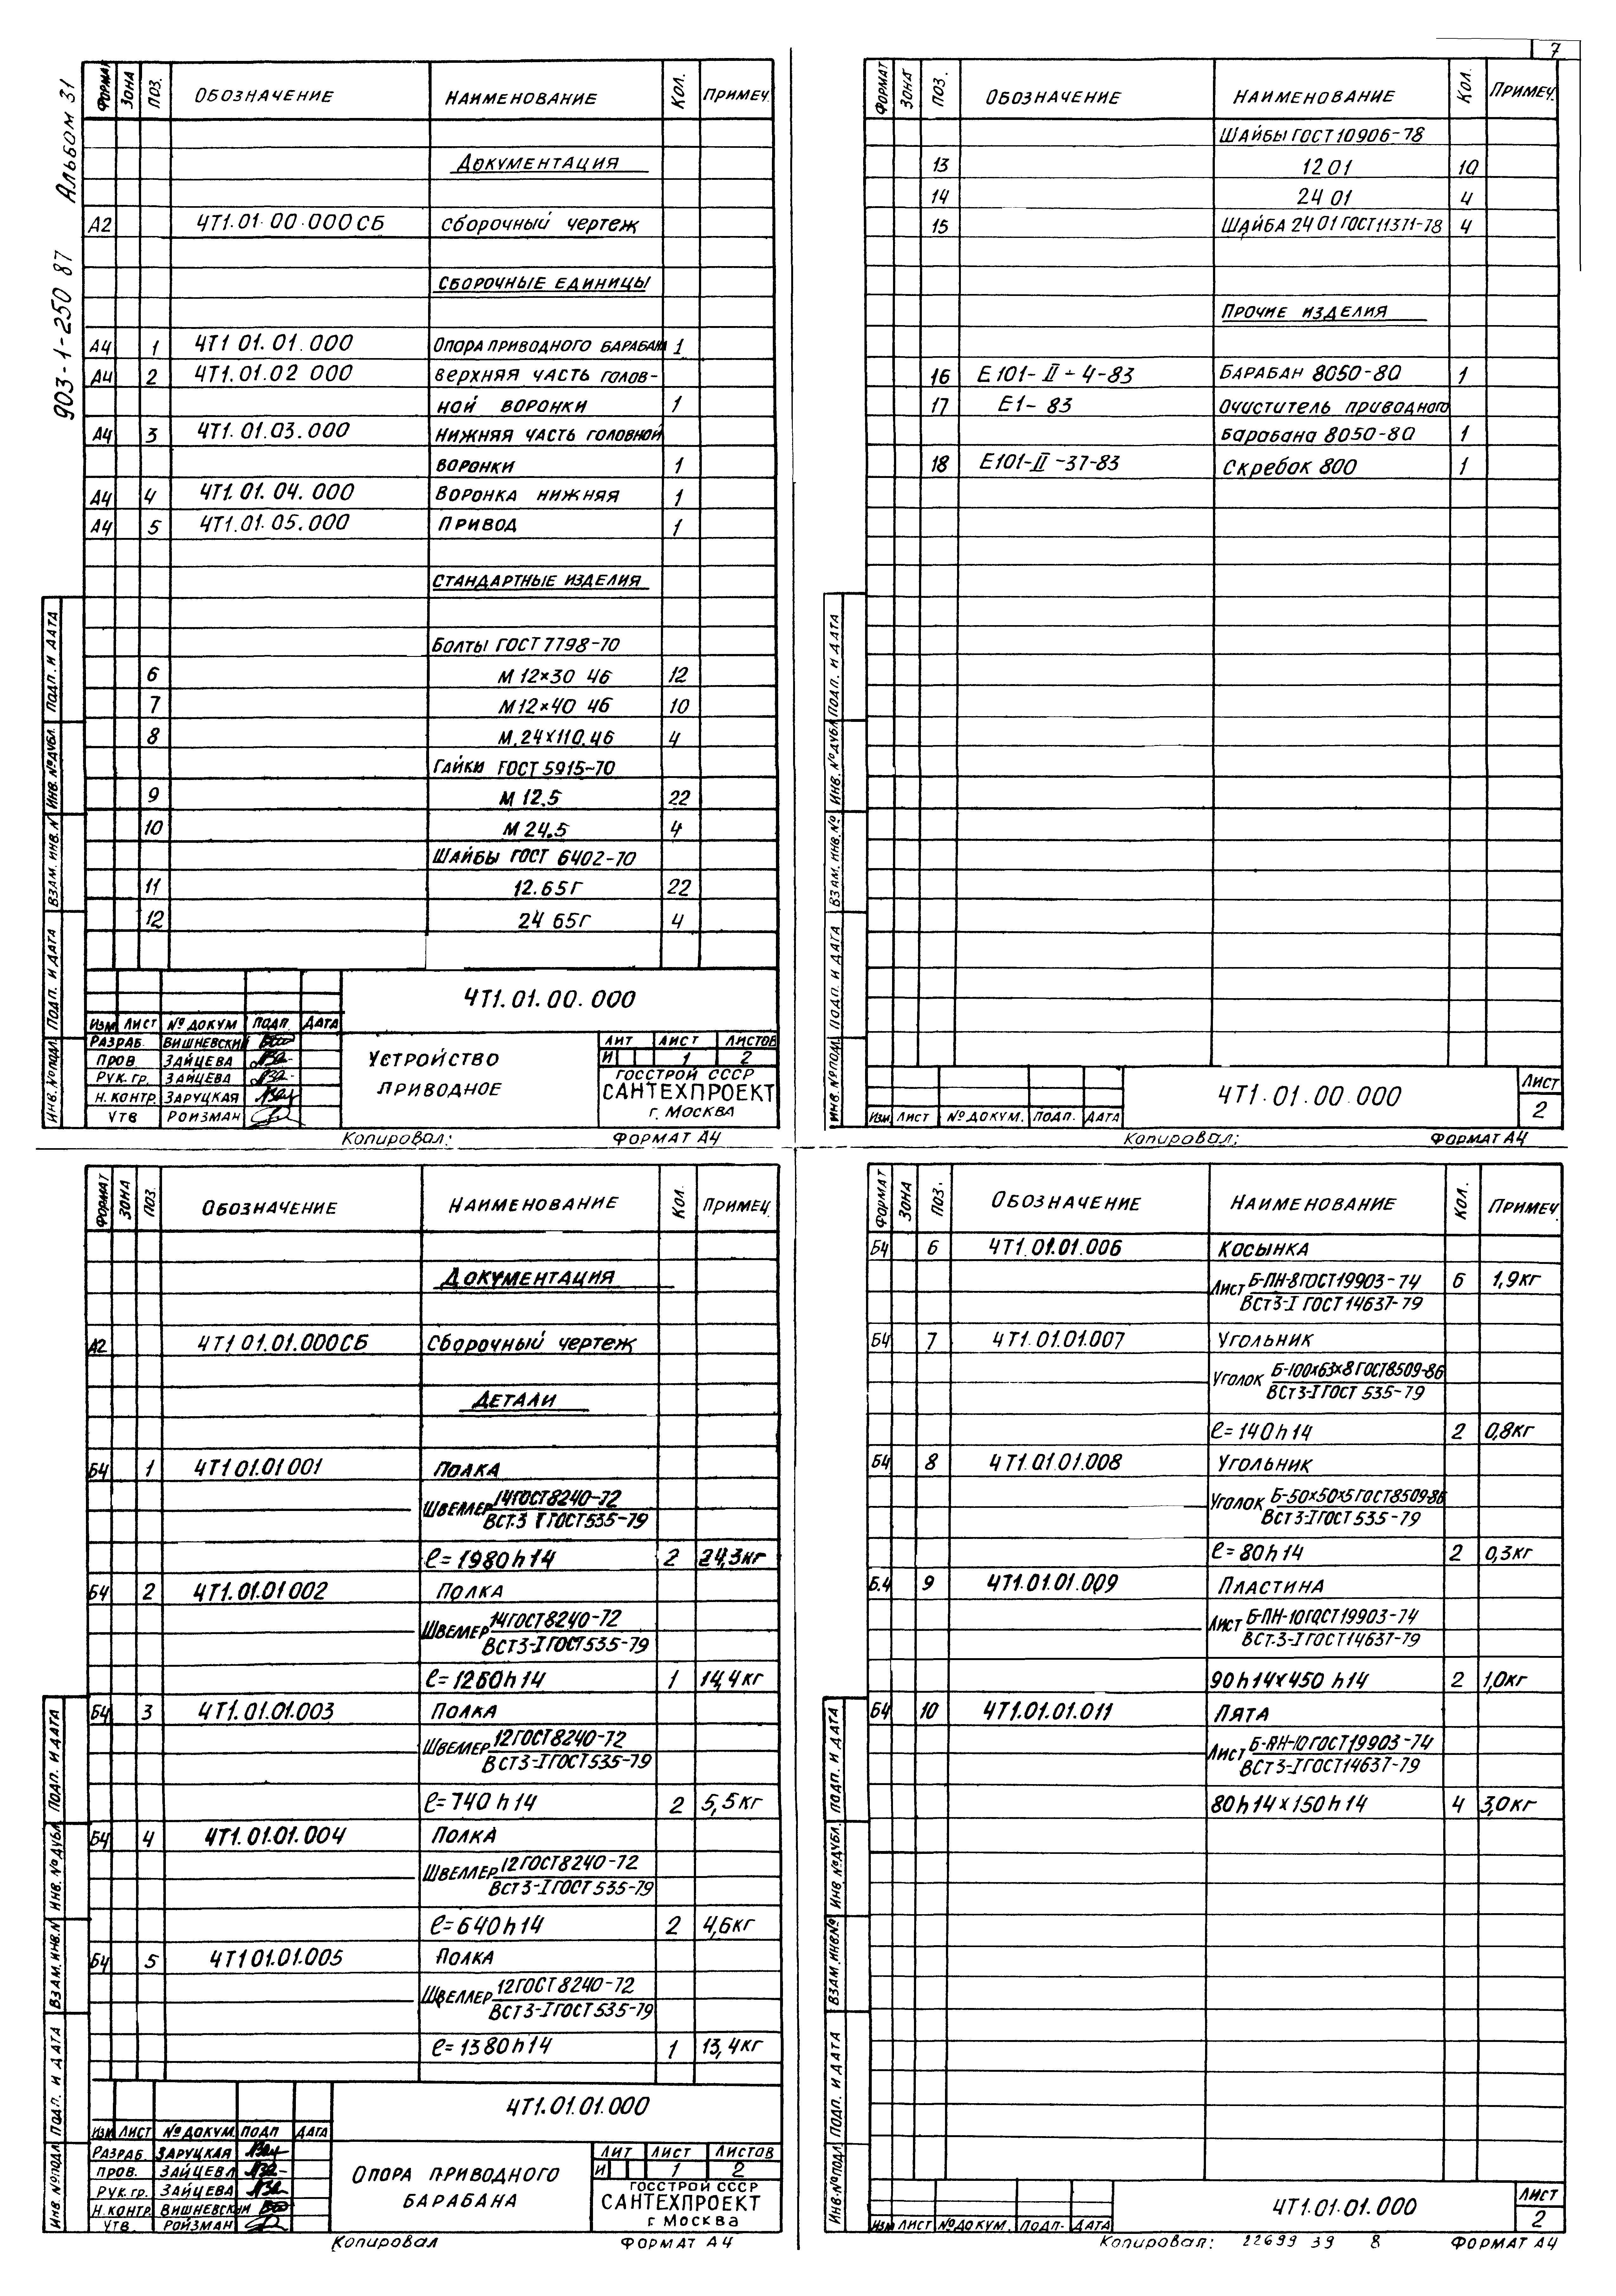 7
903-1-250 87 Альбом 31
Формат Зона Поз. Обозначение Наименование Кол. Примеч.
Документация
А2 4Т1.01.00.000СБ Сборочный чертеж
Сборочные единицы
А4 1 4Т1 01.01.000 Опора приводного барабана 1
А4 2 4Т1.01.02 000 Верхняя часть голов-
ной воронки 1
А4 3 4Т1.01.03.000 Нижняя часть головной
воронки 1
А4 4 4Т1.01.04.000 Воронка нижняя 1
А4 5 4Т1.01.05.000 Привод 1
Стандартные изделия
Болты ГОСТ 7798-70
6 М 12×30 46 12
7 М12×40 46 10
8 М.24×110.46 4
Гайки ГОСТ 5915-70
9 М 12.5 22
10 М 24.5 4
Шайбы ГОСТ 6402-70
11 12.65Г 22
12 24 65Г 4
4Т1.01.00.000
Изм Лист № докум Подп. Дата
Разраб. Вишневский
Пров. Зайцева
Рук. гр. Зайцева
Н. контр. Заруцкая
Утв Ройзман
Устройство
приводное
Лит Лист Листов
И 1 2
Госстрой СССР
САНТЕХПРОЕКТ
г. Москва
Инв.№подл Подп. и дата Взам. инв.№ Инв.№дубл. Подп. и дата
Копировал: Формат А4
Формат Зона Поз. Обозначение Наименование Кол. Примеч.
Шайбы ГОСТ 10906-78
13 12 01 10
14 24 01 4
15 Шайба 24 01 ГОСТ11371-78 4
Прочие изделия
16 Е101-II-4-83 Барабан 8050-80 1
17 Е1-83 Очиститель приводного
барабана 8050-80 1
18 Е101-II-37-83 Скребок 800 1
4Т1.01.00.000
Лист
2
Изм Лист № докум. Подп. Дата
Инв.№подл Подп. и дата Взам. инв.№ Инв.№дубл Подп. и дата
Копировал: Формат А4
Формат Зона Поз. Обозначение Наименование Кол. Примеч.
Документация
А2 4Т1 01.01.000СБ Сборочный чертеж
Детали
Б4 1 4Т1 01.01 001 Полка
Швеллер 14ГОСТ8240-72
ВСт.3 I ГОСТ535-79
ℓ=1980h14 2 24,3кг
Б4 2 4Т1.01.01 002 Полка
Швеллер 14ГОСТ8240-72
ВСт3-I ГОСТ535-79
ℓ=1260h14 1 14,4кг
Б4 3 4Т1.01.01.003 Полка
Швеллер 12ГОСТ8240-72
ВСт3-I ГОСТ535-79
ℓ=740h14 2 5,5кг
Б4 4 4Т1.01.01.004 Полка
Швеллер 12ГОСТ8240-72
ВСт3-I ГОСТ535-79
ℓ=640h14 2 4,6кг
Б4 5 4Т1 01.01.005 Полка
Швеллер 12ГОСТ8240-72
ВСт3-I ГОСТ535-79
ℓ=1380h14 1 13,4кг
4Т1.01.01.000
Изм Лист № докум. Подп Дата
Разраб. Заруцкая
Пров. Зайцева
Рук. гр. Зайцева
Н. контр. Вишневский
Утв. Ройзман
Опора приводного
барабана
Лит Лист Листов
И 1 2
Госстрой СССР
САНТЕХПРОЕКТ
г Москва
Инв №подл Подп. и дата Взам. инв.№ Инв.№дубл Подп. и дата
Копировал Формат А4
Формат Зона Поз. Обозначение Наименование Кол. Примеч
Б4 6 4Т1.01.01.006 Косынка
Лист Б-ПН-8ГОСТ19903-74 6 1,9кг
ВСт3-I ГОСТ14637-79
Б4 7 4Т1.01.01.007 Угольник
Уголок Б-100×63×8ГОСТ8509-86
ВСт3-I ГОСТ 535-79
ℓ=140h14 2 0,8кг
Б4 8 4Т1.01.01.008 Угольник
Уголок Б-50×50×5ГОСТ8509-86
ВСт3-I ГОСТ 535-79
ℓ=80h14 2 0,3кг
Б.4 9 4Т1.01.01.009 Пластина
Лист Б-ПН-10ГОСТ19903-74
ВСт.3-I ГОСТ14637-79
90h14×450 h14 2 1,0кг
Б4 10 4Т1.01.01.011 Пята
Лист Б-ПН-10ГОСТ19903-74
ВСт3-I ГОСТ14637-79
80h14×150h14 4 3,0кг
4Т1.01.01.000
Лист
2
Изм Лист № докум. Подп. Дата
Инв.№подл Подп. и дата Взам.инв№ Инв №дубл. Подп. и дата
Копировал: 22699 39 8 Формат А4